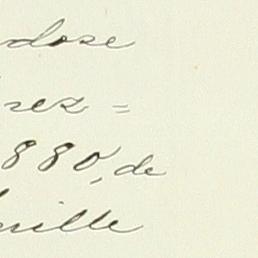 ndose
rez =
880, de
nille